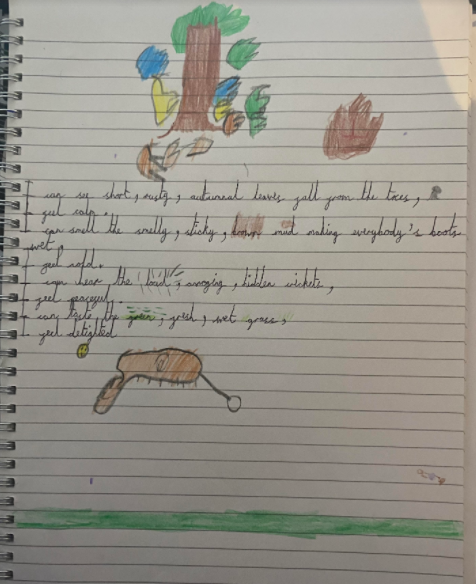 I can see short, rusty, autumnal leaves fall from the trees,
I feel calm.
I can smell the smelly, sticky, brown mud making everybody's boots
wet,
I feel cold.
I can hear the loud, annoying, hidden crickets,
I feel peaceful.
I can taste the green, fresh, wet grass,
I feel delighted